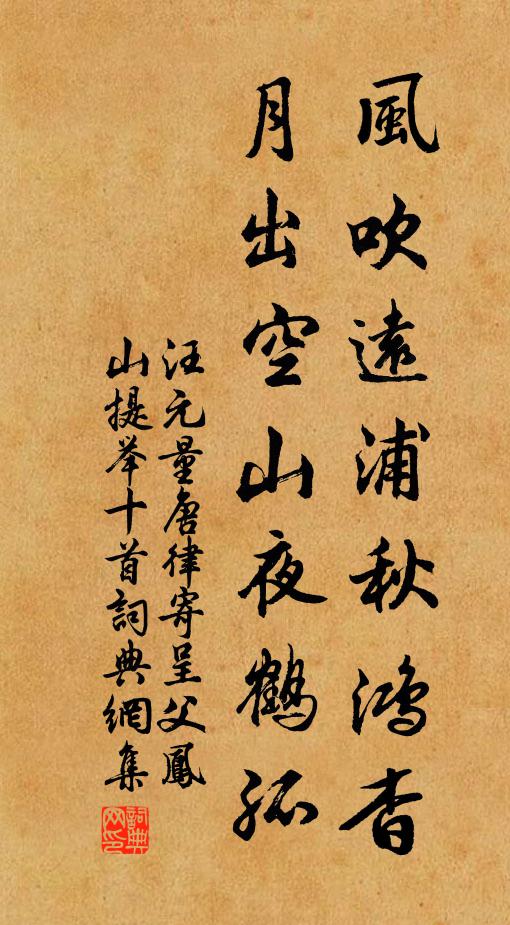 風吹遠浦秋鴻杳
月出空山夜鶴孤
汪元量唐律寄呈父鳳
山提举十首詞典網集
詞典
网印